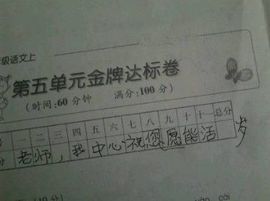 级语文上
第五单元金牌达标卷
(时间:60分钟 满分:100分)
一 二 三 四 五 六 七 八 九 十 十一 总分
老师,我中心祝您愿能活岁